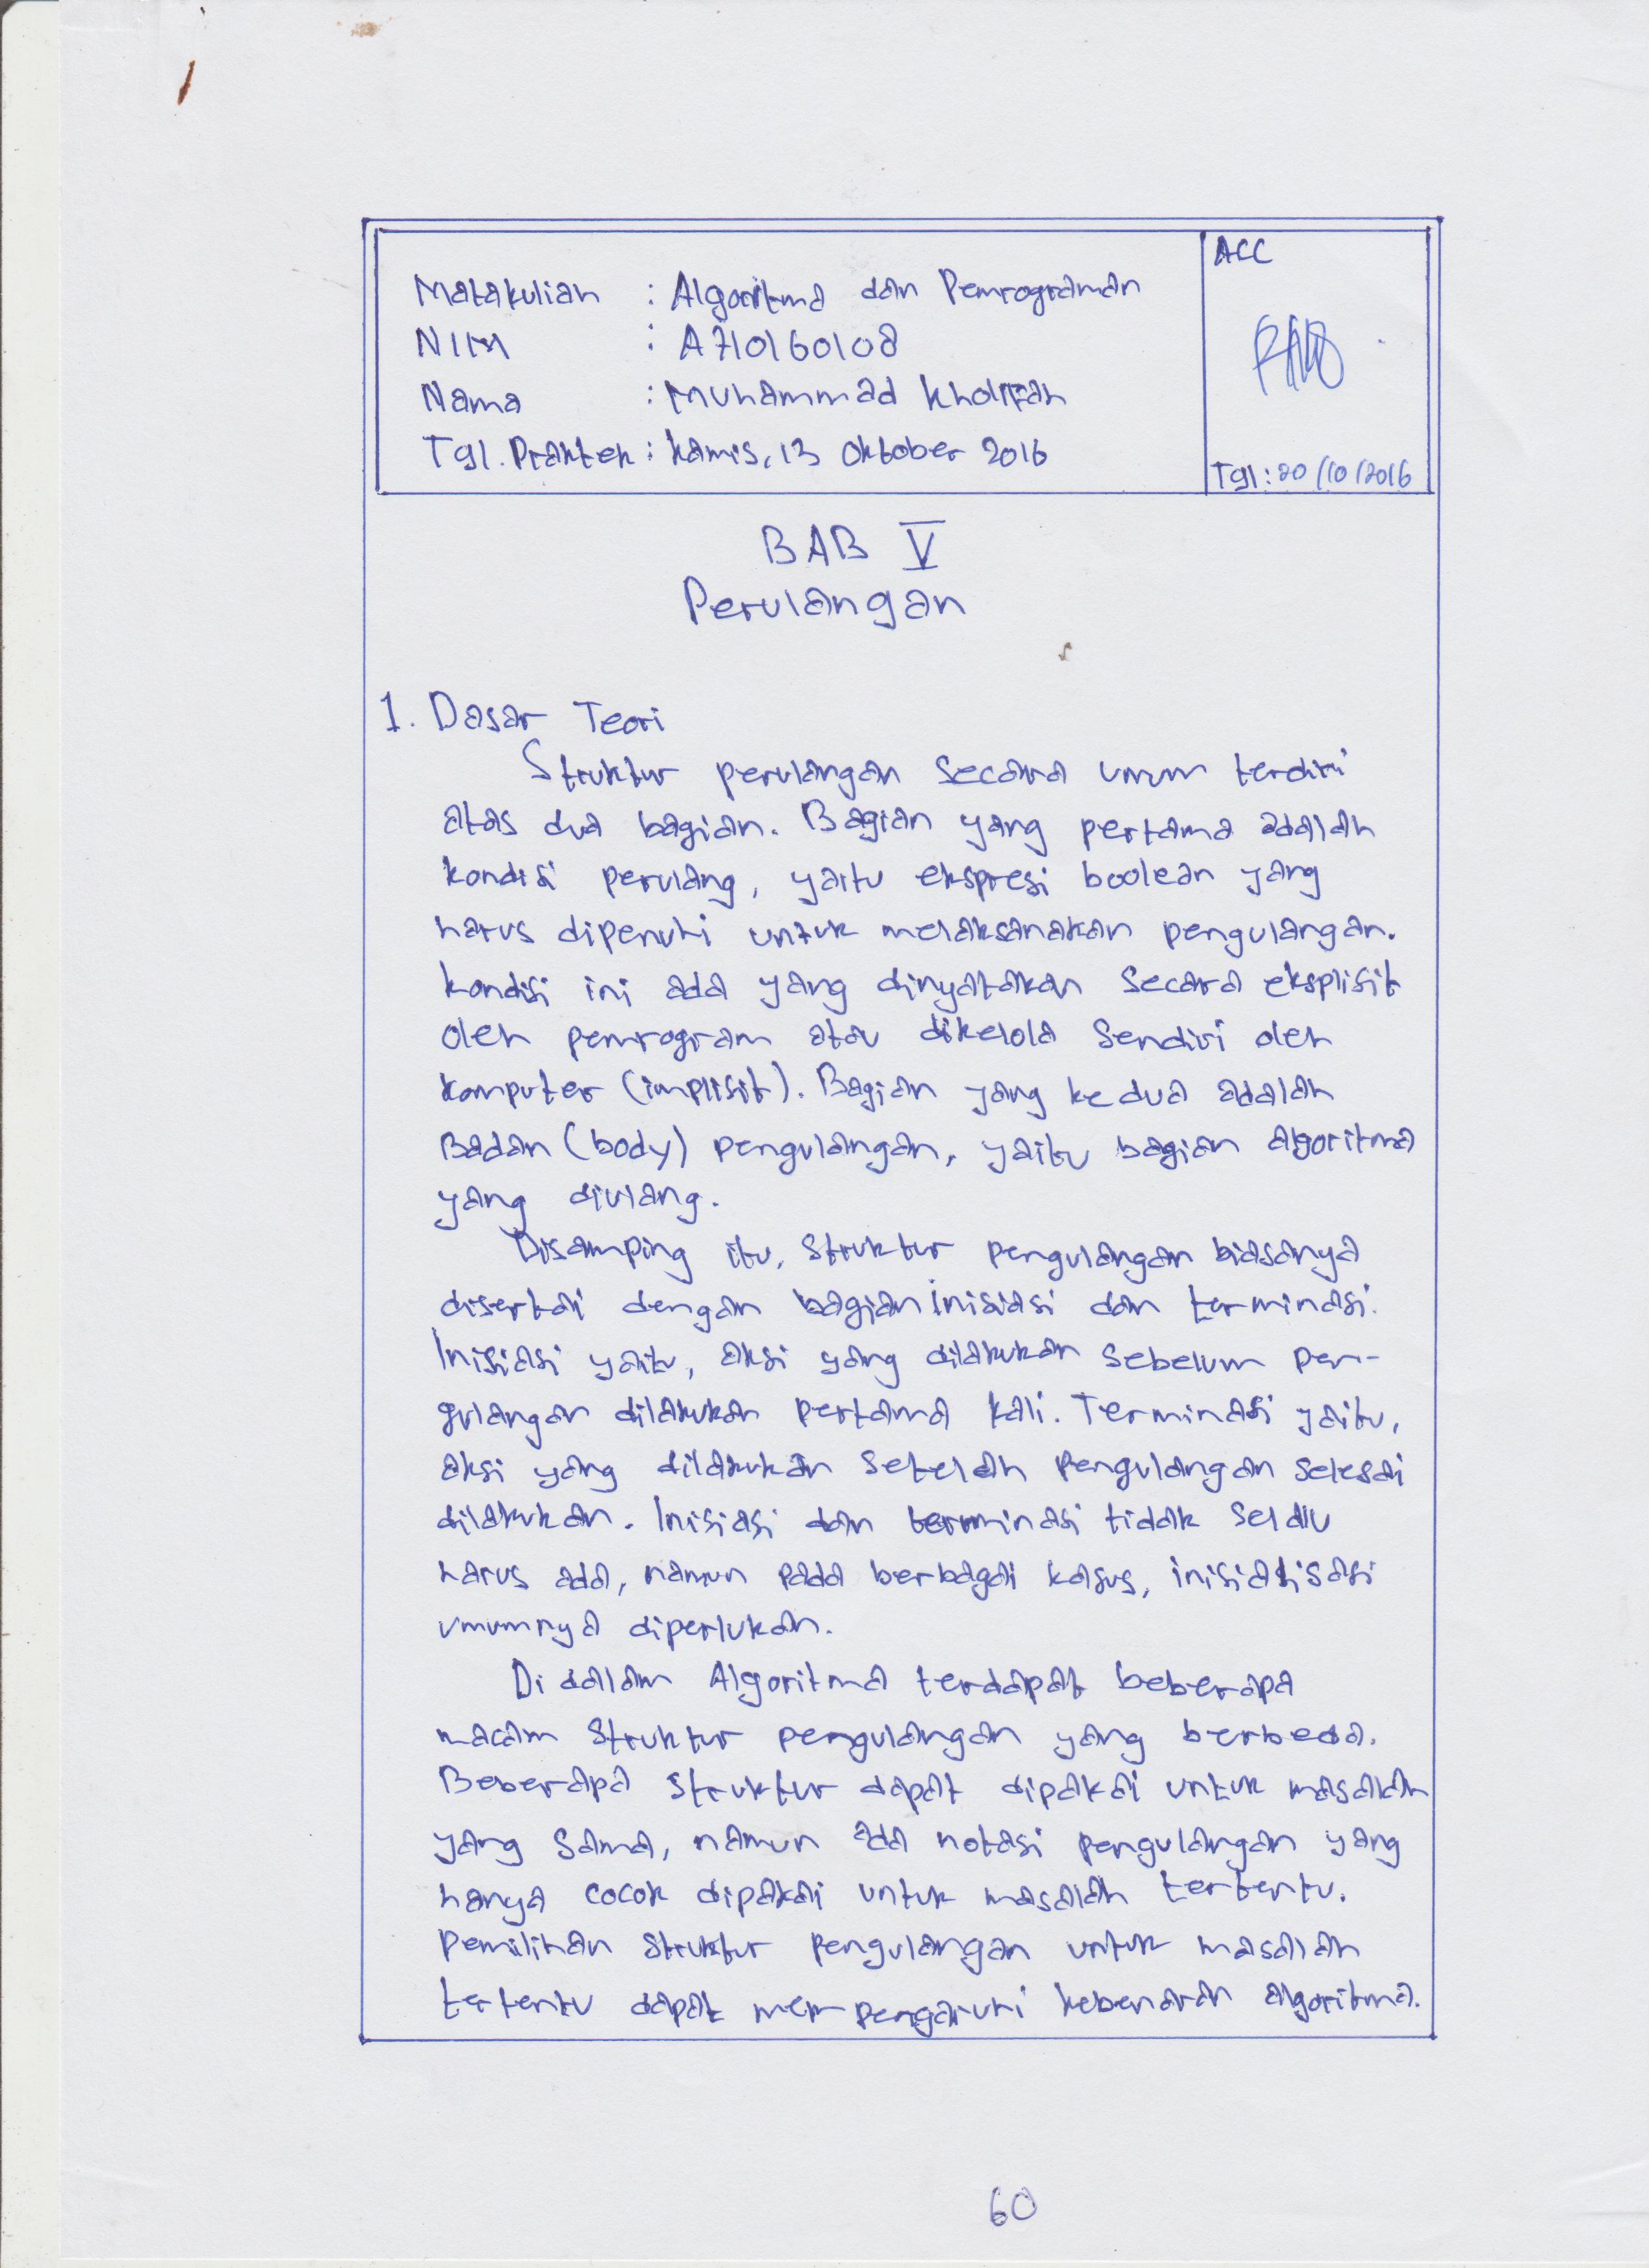 Matakuliah : Algoritma dan Pemrograman
NIM : A710160108
Nama : Muhammad Kholifah
Tgl. Praktek : Kamis, 13 Oktober 2016
ACC
Tgl : 20/10/2016
BAB V
Perulangan
1. Dasar Teori
Struktur perulangan secara umum terdiri
atas dua bagian. Bagian yang pertama adalah
kondisi perulang, yaitu ekspresi boolean yang
harus dipenuhi untuk melaksanakan pengulangan.
kondisi ini ada yang dinyatakan secara eksplisit
oleh pemrogram atau dikelola sendiri oleh
komputer (implisit). Bagian yang kedua adalah
Badan (body) pengulangan, yaitu bagian algoritma
yang diulang.
Disamping itu, struktur pengulangan biasanya
disertai dengan bagian inisiasi dan terminasi.
Inisiasi yaitu, aksi yang dilakukan sebelum pen-
gulangan dilakukan pertama kali. Terminasi yaitu,
aksi yang dilakukan setelah pengulangan selesai
dilakukan. Inisiasi dan terminasi tidak selalu
harus ada, namun pada berbagai kasus, inisialisasi
umumnya diperlukan.
Di dalam Algoritma terdapat beberapa
macam struktur pengulangan yang berbeda.
Beberapa struktur dapat dipakai untuk masalah
yang sama, namun ada notasi pengulangan yang
hanya cocok dipakai untuk masalah tertentu.
Pemilihan struktur pengulangan untuk masalah
tertentu dapat mempengaruhi kebenaran algoritma.
60